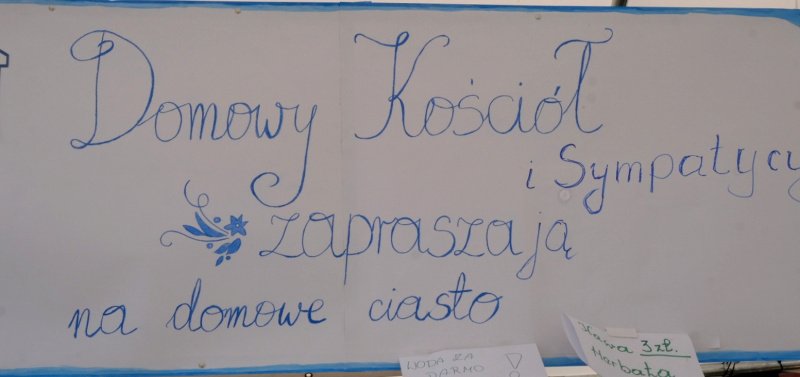 Domowy Kościół
i Sympatycy
zapraszają
na domowe ciasto
WODA ZA
DARMO !
Kawa 3 zł.
Herbata